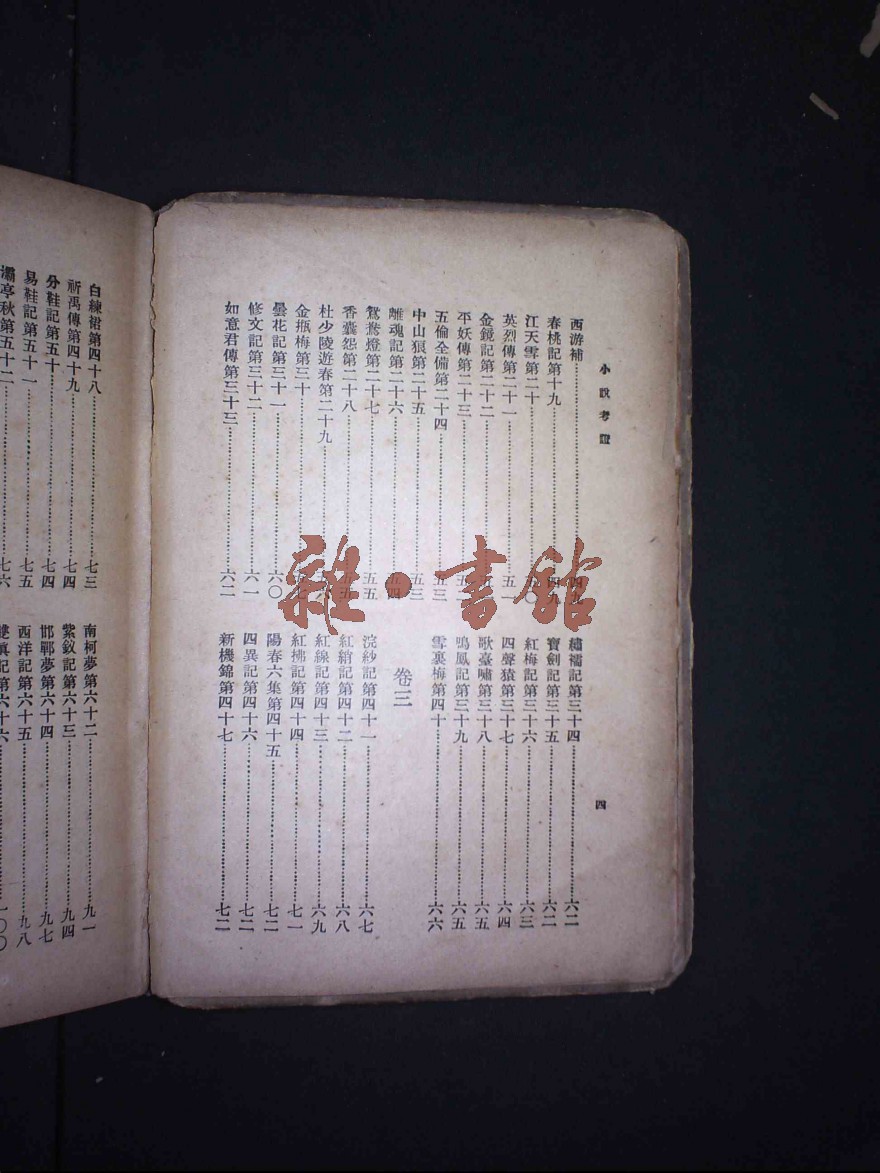 小說考證
四
西游補……四九
春桃記第十九……四九
江天雪第二十……〇
英烈傳第二十一……五一
金鏡記第二十二……五
平妖傳第二十三……五二
五倫全備第二十四……五三
中山狼第二十五……五三
離魂記第二十六……五四
鴛鴦燈第二十七……五五
香囊怨第二十八……五五
杜少陵遊春第二十九……五
金瓶梅第三十……七
曇花記第三十一……六〇
修文記第三十二……六一
如意君傳第三十三……六二
繡襦記第三十四……六二
寶劍記第三十五……六二
紅梅記第三十六……六三
四聲猿第三十七……六四
歌臺嘯第三十八……六五
鳴鳳記第三十九……六五
雪裏梅第四十……六六
卷三
浣紗記第四十一……六七
紅綃記第四十二……六八
紅線記第四十三……六九
紅拂記第四十四……七一
陽春六集第四十五……七二
四異記第四十六……七二
新機錦第四十七……七二
白練裙第四十八……七三
祈禹傳第四十九……七四
分鞋記第五十……七四
易鞋記第五十一……七五
灞亭秋第五十二……七六
南柯夢第六十二……九一
紫釵記第六十三……九四
邯鄲夢第六十四……九七
西洋記第六十五……九八
記第六十六……一〇〇
雜·書館